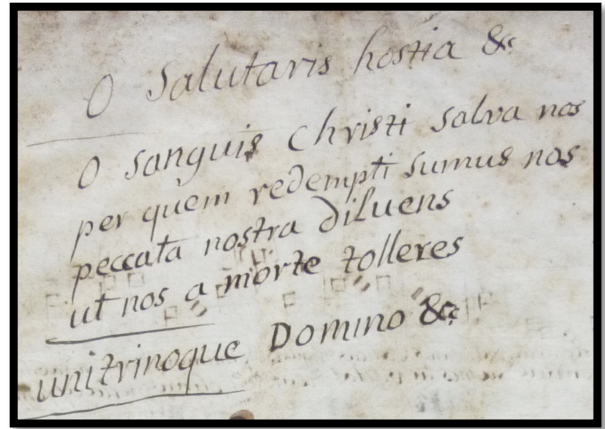 O Salutaris hostia &c
O sanguis Christi salva nos
per quem redempti sumus nos
peccata nostra diluens
ut nos a morte tolleres
unitrinoque Domino &c